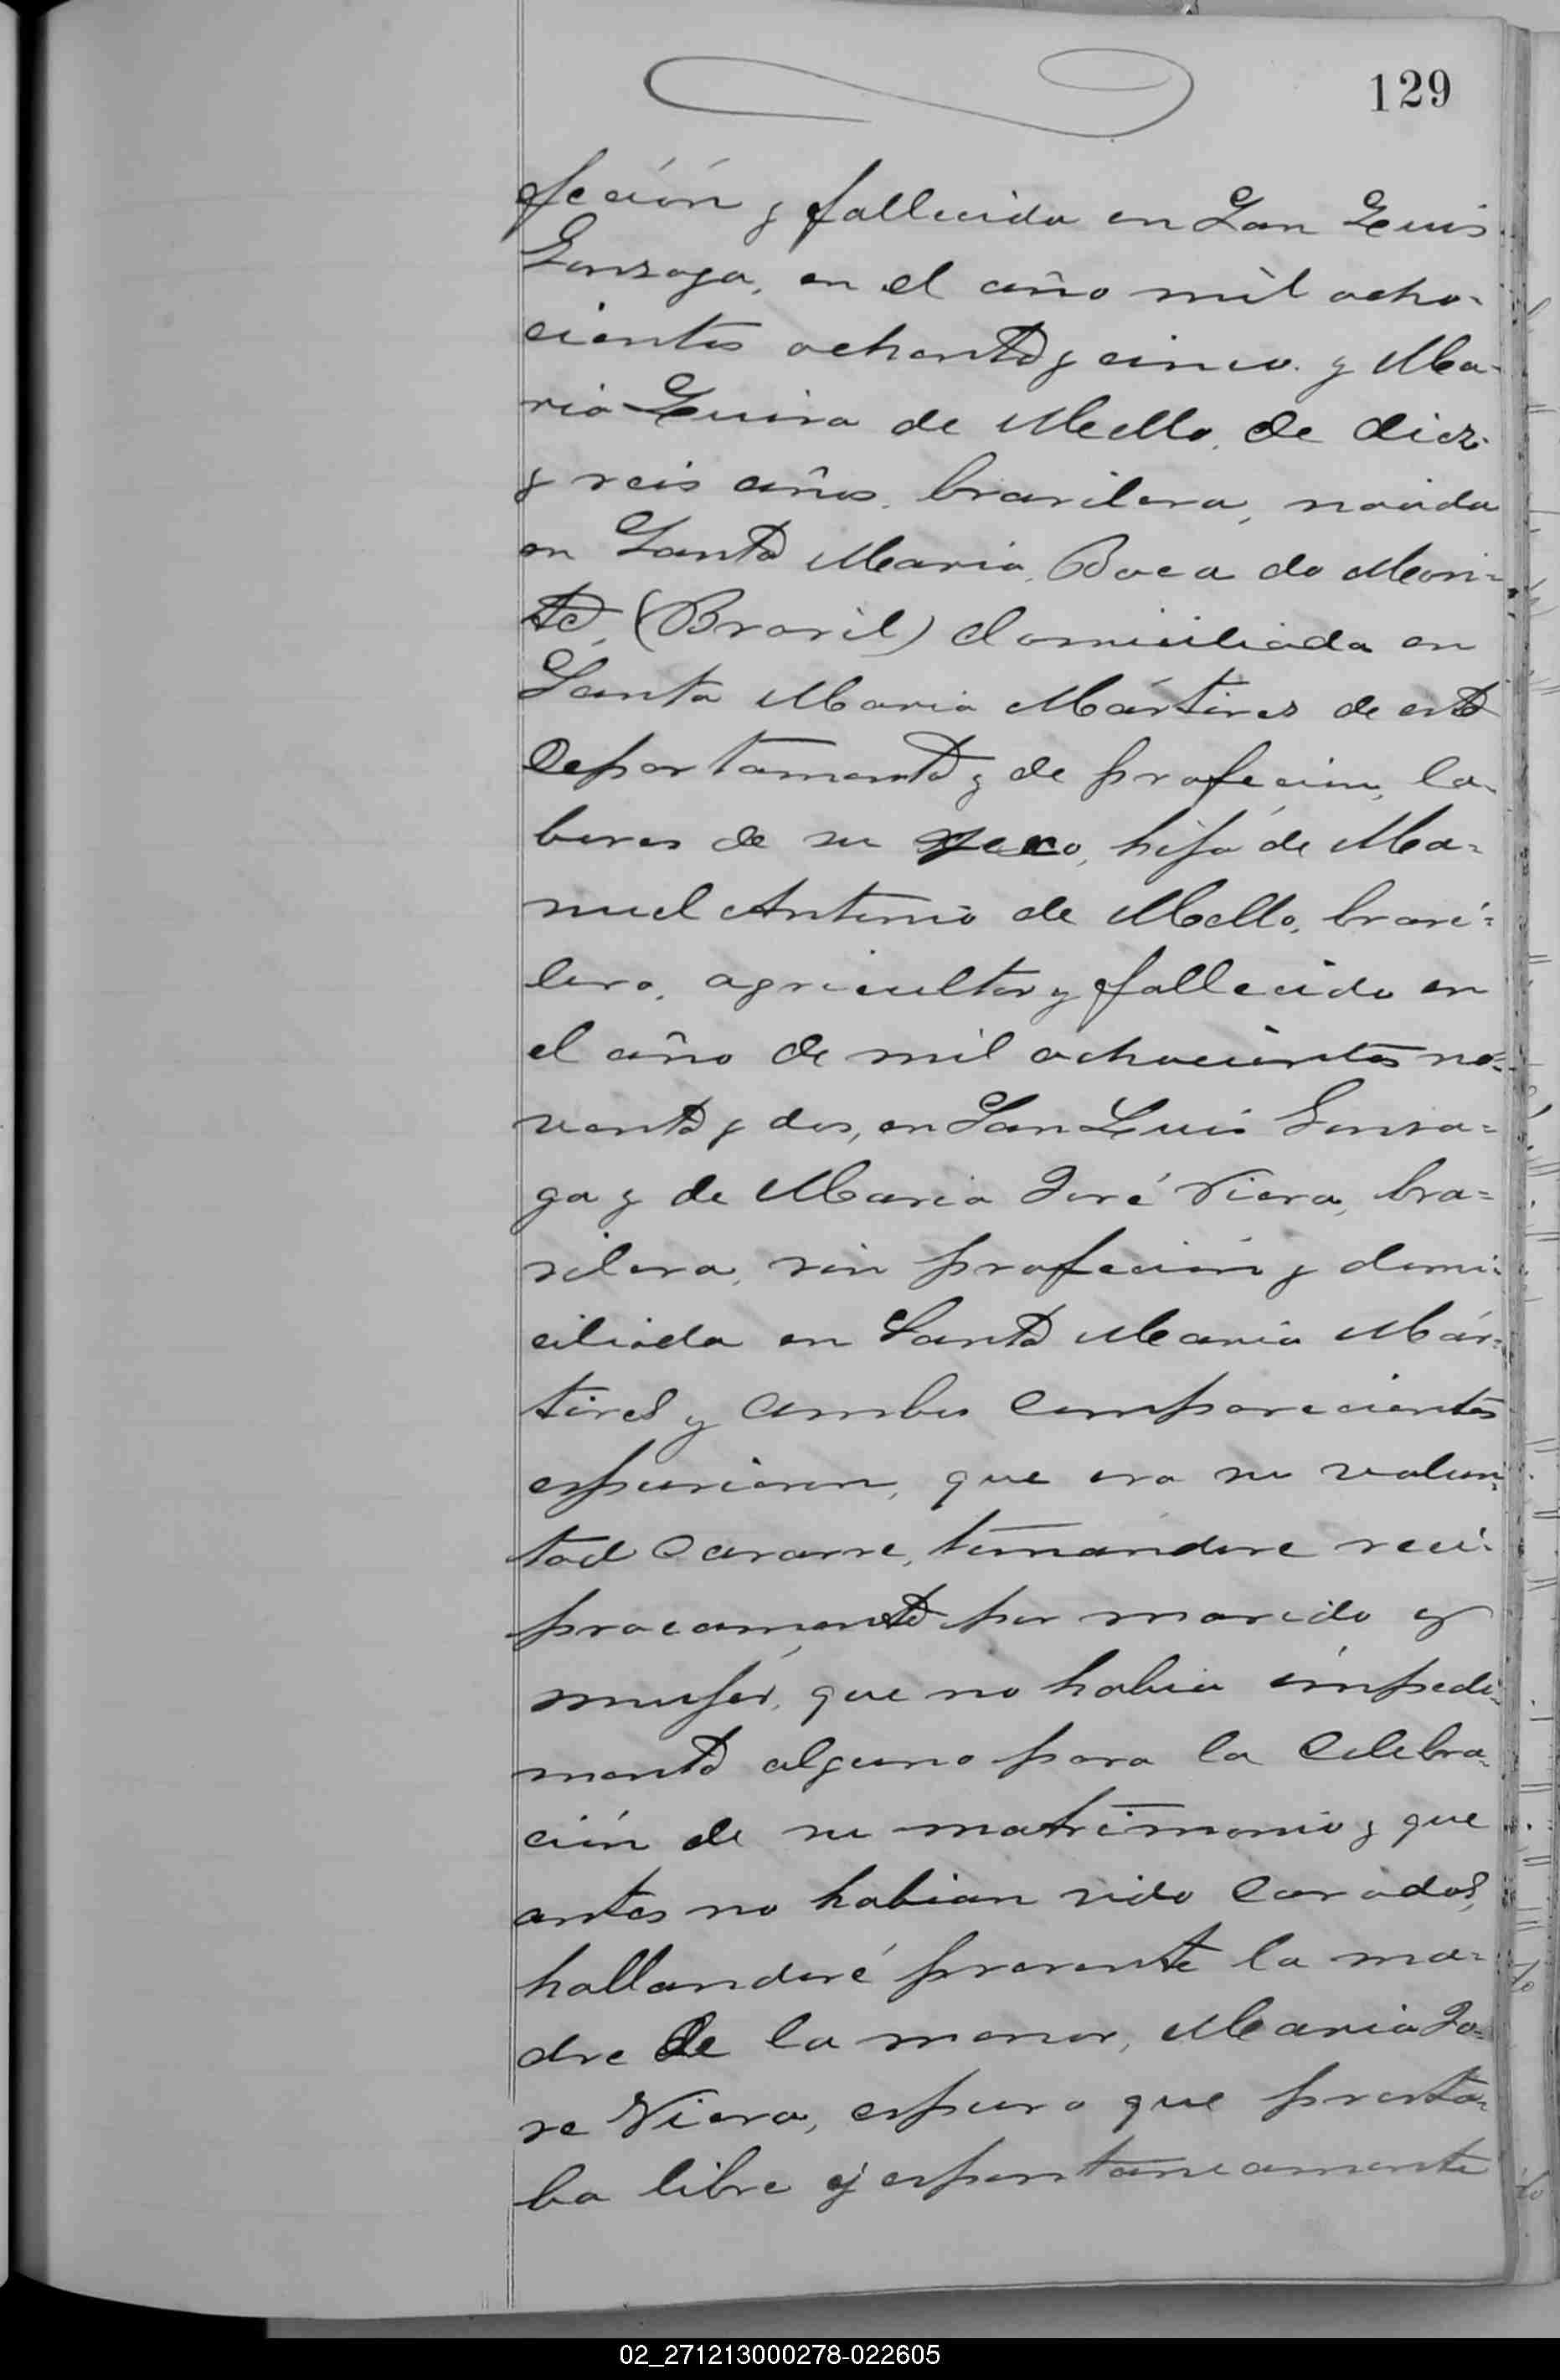 129
feción y fallecida en San Luis
Gonzaga, en el año mil ocho-
cientos ochenta y cinco y Ma-
ria Luisa de Mello, de diez
y seis años, brasilera, nacida
en Santa Maria, Boca do Mon-
te, (Brasil) domiciliada en
Santa Maria Mártires de este
Departamento y de profecion, la-
bores de su sexo, hija de Ma-
nuel Antonio de Mello, brasi-
lero, agricultor y fallecido en
el año de mil ochocientos no-
venta y dos, en San Luis Gonza-
ga y de Maria José Viera, bra-
silera, sin profeción y domi-
ciliada en Santa Maria Már-
tires y ambos comparecientes
espusieron, que era su volun-
tad casarse, tomandose reci-
procamente por marido y
mujer, que no habia impedi-
mento alguno para la celebra-
ción de su matrimonio y que
antes no habian sido casados,
hallandosé presente la ma-
dre de la menor, Maria Jo-
se Viera, espuso que presta-
ba libre y espontaneamente
02_271213000278-022605